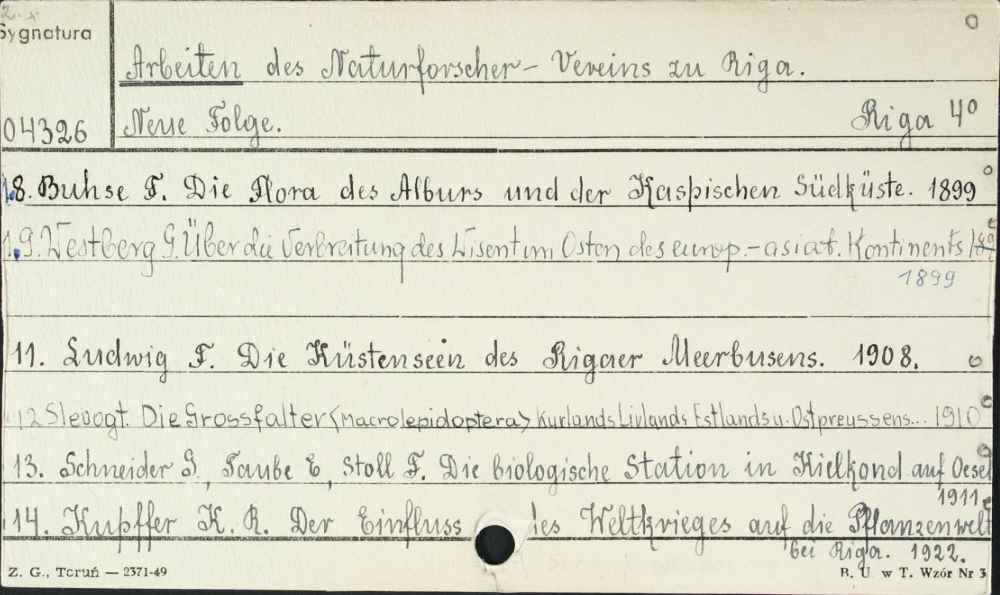 Sygnatura
Arbeiten des Naturforscher-Vereins zu Riga.
04326
Neue Folge. Riga 4°
8. Buhse F. Die Flora des Alburs und der Kaspischen Südküste. 1899
9. Westberg G. Über die Verbreitung des Wisent im Osten des europ.-asiat. Kontinents
1899
11. Ludwig F. Die Küstenseen des Rigaer Meerbusens. 1908.
12 Slevogt. Die Grossfalter <Macrolepidoptera> Kurlands Livlands Estlands u. Ostpreussens... 1910
13. Schneider G, Taube E, Stoll F. Die biologische Station in Kielkond auf Oesel
1911
14. Kupffer K. R. Der Einfluss des Weltkrieges auf die Pflanzenwelt
bei Riga. 1922.
Z. G., Toruń — 2371-49 B. U w T. Wzór Nr 3